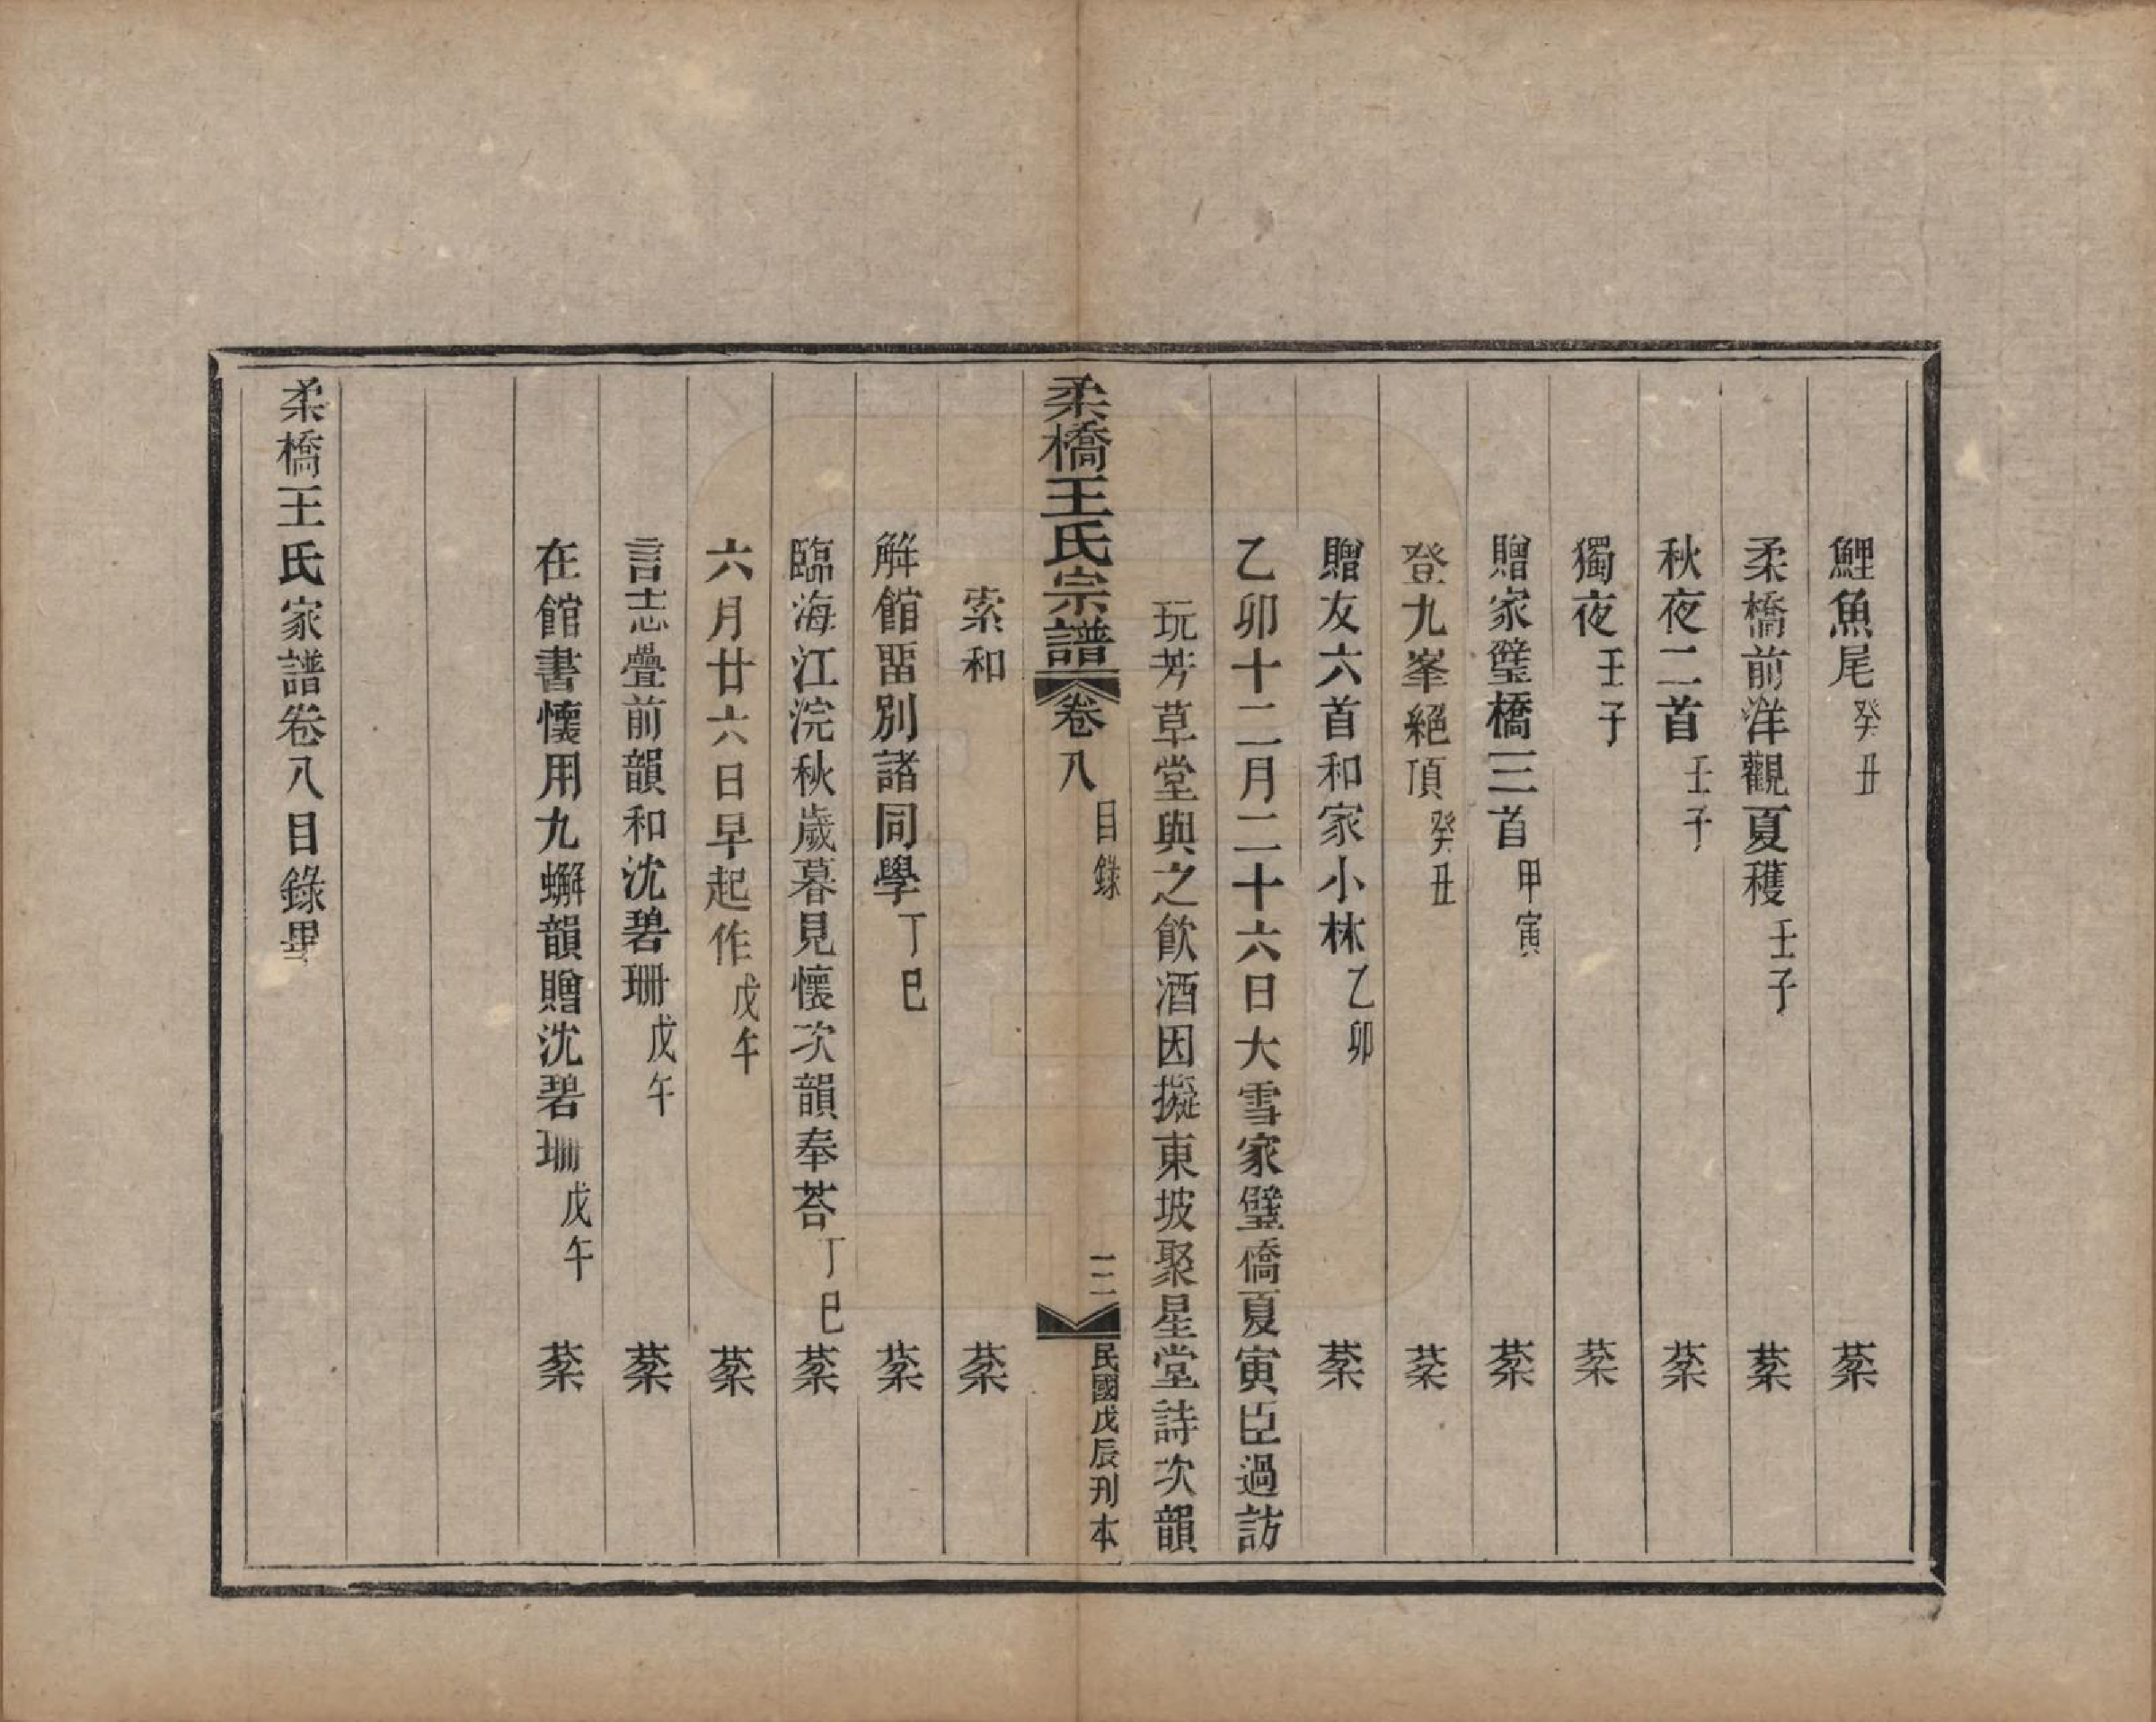 鯉魚尾癸丑 棻
柔橋前洋觀夏穫壬子 棻
秋夜二首壬子 棻
獨夜壬子 棻
贈家璧橋三首甲寅 棻
登九峯絕頂癸丑 棻
贈友六首和家小林乙卯 棻
乙卯十二月二十六日大雪家璧僑夏寅臣過訪
玩芳草堂與之飲酒因擬東坡聚星堂詩次韻
柔橋王氏宗譜 卷八 目錄 三 民國戊辰刊本
索和 棻
解館畱別諸同學丁巳 棻
臨海江浣秋歲暮見懷次韻奉荅丁巳 棻
六月廿六日早起作戊午 棻
言志疊前韻和沈碧珊戊午 棻
在館書懷用九蠏韻贈沈碧珊戊午 棻
柔橋王氏家譜卷八目錄畢